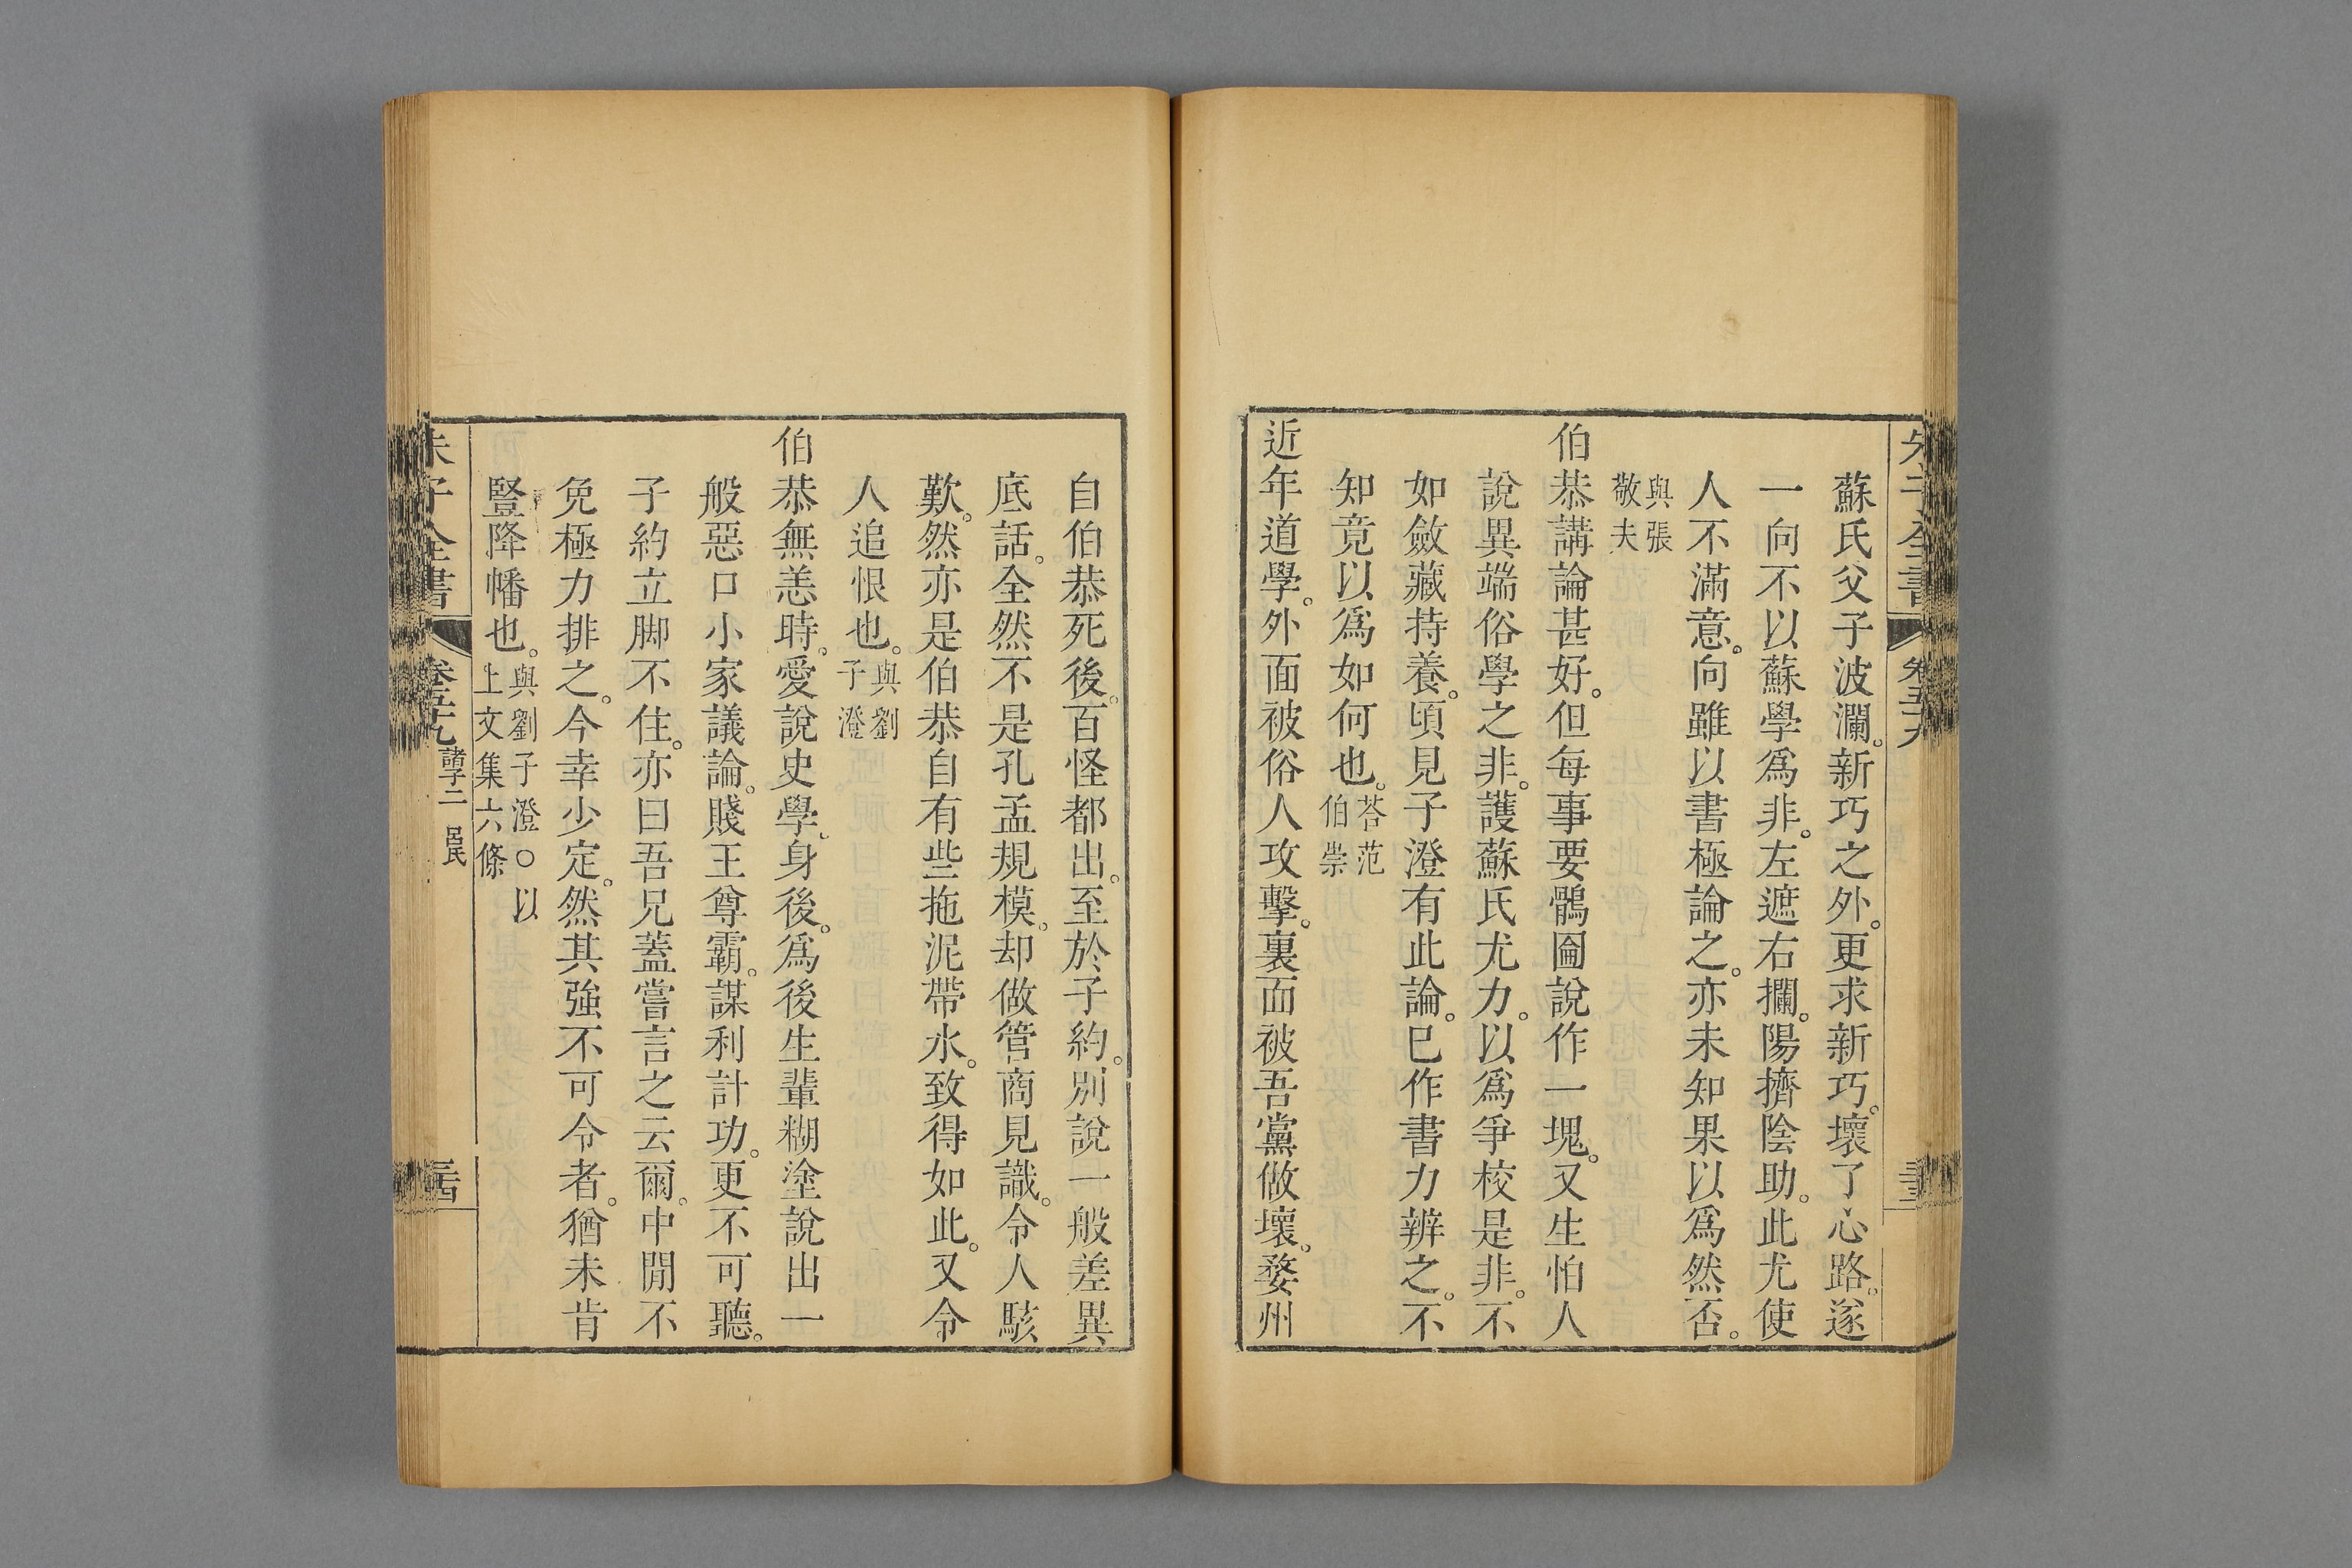 朱子全書 卷五十九
蘇氏父子波瀾。新巧之外。更求新巧。壞了心路。遂
一向不以蘇學爲非。左遮右攔。陽擠陰助。此尤使
人不滿意。向雖以書極論之。亦未知果以爲然否。
與張
敬夫
伯恭講論甚好。但每事要鶻圇說作一塊。又生怕人
說異端俗學之非。護蘇氏尤力。以爲爭校是非。不
如斂藏持養。頃見子澄有此論。已作書力辨之。不
知竟以爲如何也。荅范
伯崇
近年道學。外面被俗人攻擊。裏面被吾黨做壞。婺州
自伯恭死後。百怪都出。至於子約。別說一般差異
底話。全然不是孔孟規模。却做管商見識。令人駭
歎。然亦是伯恭自有些拖泥帶水。致得如此。又令
人追恨也。與劉
子澄
伯恭無恙時。愛說史學。身後。爲後生輩糊塗說出一
般惡口小家議論。賤王尊霸。謀利計功。更不可聽。
子約立脚不住。亦曰吾兄蓋嘗言之云爾。中閒不
免極力排之。今幸少定。然其強不可令者。猶未肯
豎降幡也。與劉子澄○以
上文集六條
朱子全書 卷五十九 諸子二 呂氏